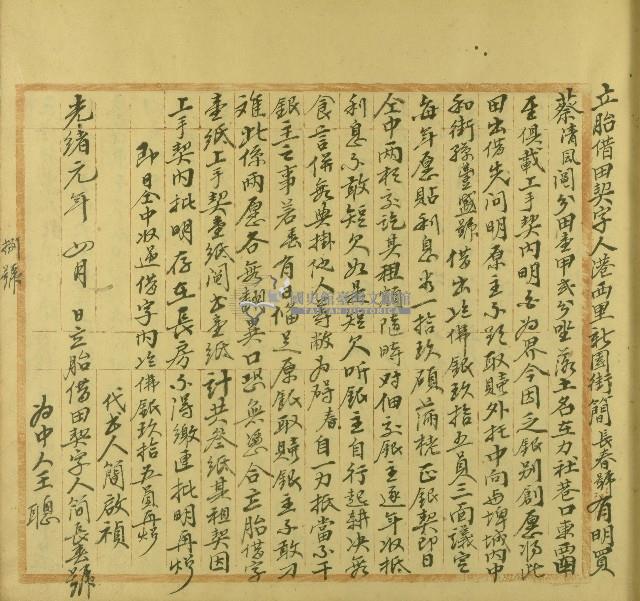 立胎借田契字人港西里新園街簡長春號有明買
蔡清風鬮分田壹甲貳分坐落土名在力社巷口東西
至俱載上手契內明白為界今因乏銀別創愿將此
田出借先問明原主不能取贖外托中向與埤城內中
和街孫豐盛號借出冷佛銀玖拾五員三面議定
每年愿貼利息粟一拾玖碩滿栳正銀契即日
仝中兩相交訖其租額隨時對佃交銀主逐年收抵
利息不敢短欠如是短欠聽銀主自行起耕决無
食言併無典掛他人等敝為碍春自一力抵當不干
銀主之事若春有日備足原銀取贖銀主不敢刁
难此係兩愿各無翻異口恐無憑合立胎借字
壹紙上手契壹紙鬮書壹紙計共叁紙某租契因
上手契內批明存在長房不得繳連批明再炤
即日仝中收過借字內冷佛銀玖拾五員再炤
代書人簡啟禎
光緒元年 四月 日立胎借田契字人簡長春號
為中人王聰
捌號
國史館臺灣文獻館
TAIWAN HISTORICA